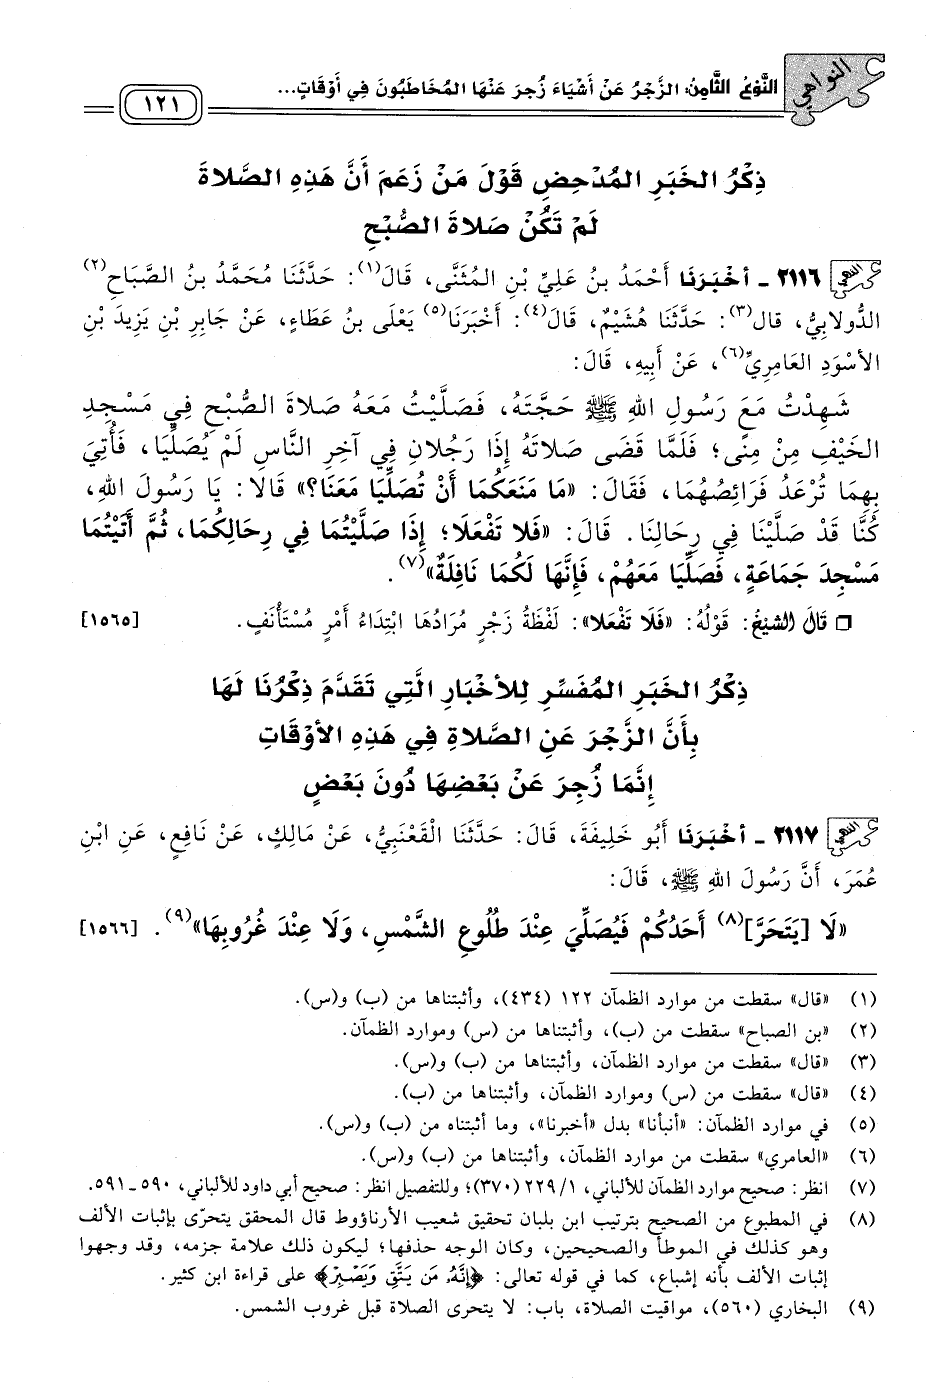 النواهي
النَّوْعُ الثَّامِنُ: الزَّجْرُ عَنْ أَشْيَاءَ زُجِرَ عَنْهَا المُخَاطَبُونَ فِي أَوْقَاتٍ...
١٢١
ذِكْرُ الخَبَرِ المُدْحِضِ قَوْلَ مَنْ زَعَمَ أَنَّ هَذِهِ الصَّلاةَ
لَمْ تَكُنْ صَلاةَ الصُّبْحِ
٢١١٦ - أخْبَرَنَا أَحْمَدُ بنُ عَلِيِّ بْنِ المُثَنَّى، قَالَ(١): حَدَّثَنَا مُحَمَّدُ بنُ الصَّبَاحِ(٢)
الدُّولابِيُّ، قال(٣): حَدَّثَنَا هُشَيْمٌ، قَالَ(٤): أَخْبَرَنَا(٥) يَعْلَى بنُ عَطَاءٍ، عَنْ جَابِرِ بْنِ يَزِيدَ بْنِ
الأسْوَدِ العَامِرِيِّ(٦)، عَنْ أَبِيهِ، قَالَ:
شَهِدْتُ مَعَ رَسُولِ اللهِ ﷺ حَجَّتَهُ، فَصَلَّيْتُ مَعَهُ صَلاةَ الصُّبْحِ فِي مَسْجِدِ
الخَيْفِ مِنْ مِنًى؛ فَلَمَّا قَضَى صَلاتَهُ إِذَا رَجُلانِ فِي آخِرِ النَّاسِ لَمْ يُصَلِّيَا، فَأُتِيَ
بِهِمَا تُرْعَدُ فَرَائِصُهُمَا، فَقَالَ: «مَا مَنَعَكُمَا أَنْ تُصَلِّيَا مَعَنَا؟» قَالا: يَا رَسُولَ اللهِ،
كُنَّا قَدْ صَلَّيْنَا فِي رِحَالِنَا. قَالَ: «فَلا تَفْعَلا؛ إِذَا صَلَّيْتُمَا فِي رِحَالِكُمَا، ثُمَّ أَتَيْتُمَا
مَسْجِدَ جَمَاعَةٍ، فَصَلِّيَا مَعَهُمْ، فَإِنَّهَا لَكُمَا نَافِلَةٌ»(٧).
❒ قَالَ الشَّيْخُ: قَوْلُهُ: «فَلَا تَفْعَلا»: لَفْظَةُ زَجْرٍ مُرَادُهَا ابْتِدَاءُ أَمْرٍ مُسْتَأْنَفٍ. [١٥٦٥]
ذِكْرُ الخَبَرِ المُفَسِّرِ لِلأخْبَارِ الَّتِي تَقَدَّمَ ذِكْرُنَا لَهَا
بِأَنَّ الزَّجْرَ عَنِ الصَّلاةِ فِي هَذِهِ الأوْقَاتِ
إِنَّمَا زُجِرَ عَنْ بَعْضِهَا دُونَ بَعْضٍ
٢١١٧ - أخْبَرَنَا أَبُو خَلِيفَةَ، قَالَ: حَدَّثَنَا القَعْنَبِيُّ، عَنْ مَالِكٍ، عَنْ نَافِعٍ، عَنِ ابْنِ
عُمَرَ، أَنَّ رَسُولَ اللهِ ﷺ، قَالَ:
«لَا [يَتَحَرَّ](٨) أَحَدُكُمْ فَيُصَلِّيَ عِنْدَ طُلُوعِ الشَّمْسِ، وَلَا عِنْدَ غُرُوبِهَا»(٩). [١٥٦٦]
(١) «قال» سقطت من موارد الظمآن ١٢٢ (٤٣٤)، وأثبتناها من (ب) و(س).
(٢) «بن الصباح» سقطت من (ب)، وأثبتناها من (س) وموارد الظمآن.
(٣) «قال» سقطت من موارد الظمآن، وأثبتناها من (ب) و(س).
(٤) «قال» سقطت من (س) وموارد الظمآن، وأثبتناها من (ب).
(٥) في موارد الظمآن: «أنبأنا» بدل «أخبرنا»، وما أثبتناه من (ب) و(س).
(٦) «العامري» سقطت من موارد الظمآن، وأثبتناها من (ب) و(س).
(٧) انظر: صحيح موارد الظمآن للألباني، ٢٢٩/١ (٣٧٠)؛ وللتفصيل انظر: صحيح أبي داود للألباني، ٥٩٠ - ٥٩١.
(٨) في المطبوع من الصحيح بترتيب ابن بلبان تحقيق شعيب الأرناؤوط قال المحقق يتحرّى بإثبات الألف
وهو كذلك في الموطأ والصحيحين، وكان الوجه حذفها؛ ليكون ذلك علامة جزمه، وقد وجهوا
إثبات الألف بأنه إشباع، كما في قوله تعالى: ﴿إِنَّهُ مَن يَتَّقِ وَيَصْبِرْ﴾ على قراءة ابن كثير.
(٩) البخاري (٥٦٠)، مواقيت الصلاة، باب: لا يتحرى الصلاة قبل غروب الشمس.